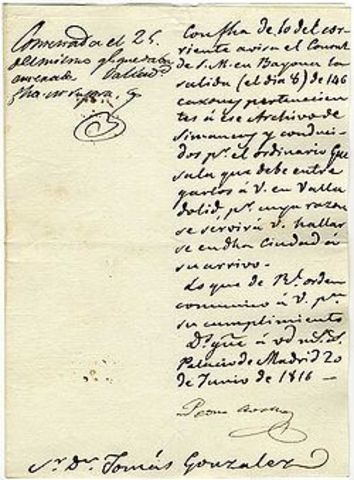 Contestada el 25.
del mismo
Con fha de 10 del cor-
riente avisa el Consul
de S. M. en Bayona la
salida (el dia 8) de 146
caxones pertenecien-
tes á ese Archivo de
Simancas y conduci-
dos pr. el ordinario
que debe entre
garlos á V. en Valla
dolid, pr. cuya razon
se servirá V. hallar
se en dha Ciudad á
su arrivo.
Lo que de Rl. orden
comunico á V. pa.
su cumplimiento
Ds. gue. á Vd ms. as.
Palacio de Madrid 20
de Junio de 1816
Sr. Dn. Tomás Gonzalez